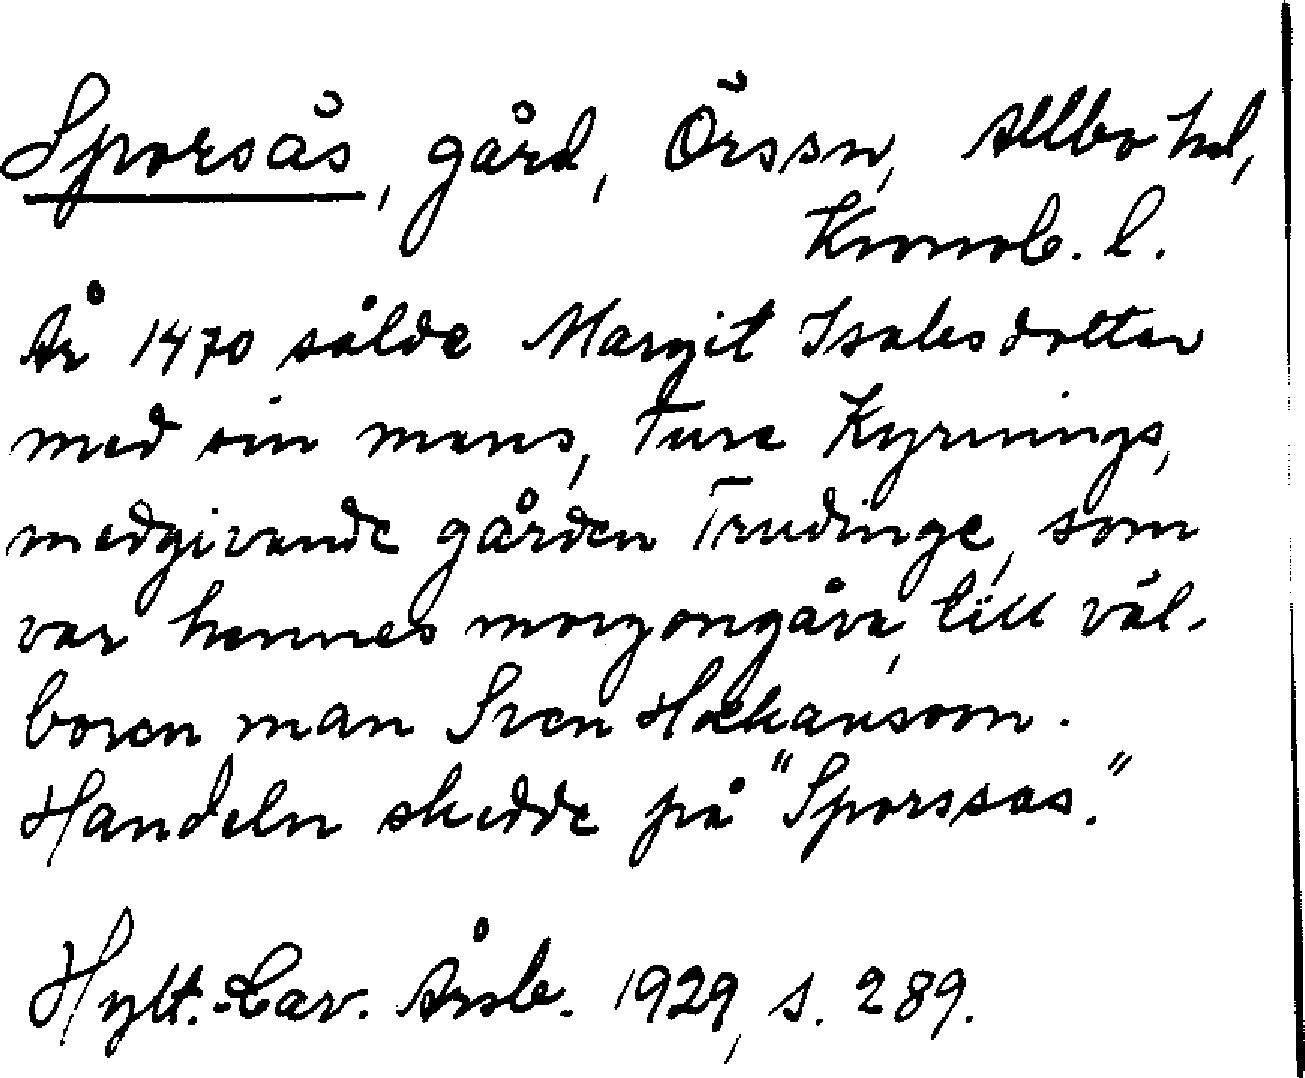 Sporsås, gård, Örs sn, Allbo hd,
Kronob. l.
År 1470 sålde Margit Isaksdotter
med sin mans, Ture Kyrnings,
medgivande gården Trudinge, som
var hennes morgongåva, till väl-
boren man Sven Hakansson.
Handeln skedde på "Sporssas."
Hylt.-Cav. Årsb. 1929, s. 289.